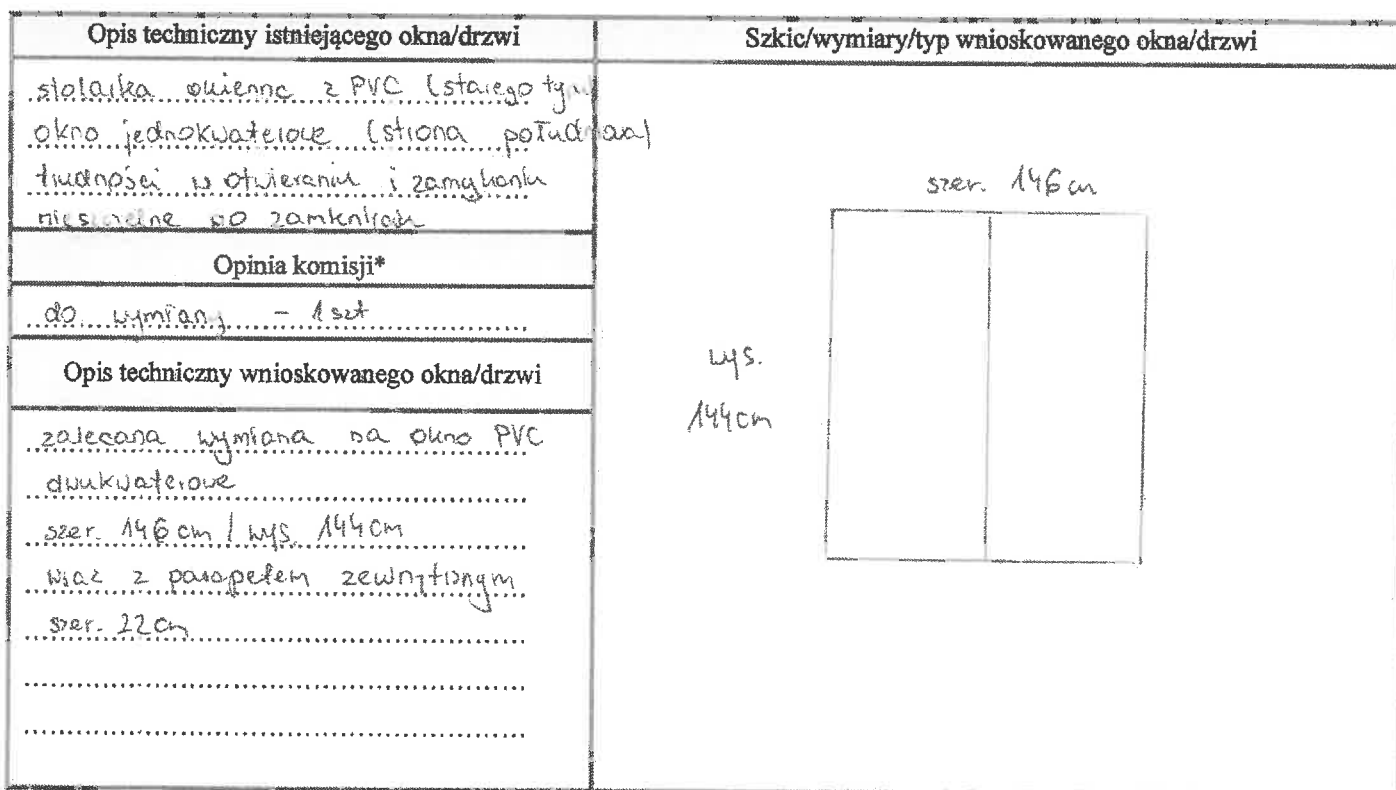 Opis techniczny istniejącego okna/drzwi
stolarka okienna z PVC (starego typu)
okno jednokwaterowe (strona południowa)
trudności w otwieraniu i zamykaniu
nieszczelne po zamknięciu
Opinia komisji*
do wymiany - 1 szt
Opis techniczny wnioskowanego okna/drzwi
zalecana wymiana na okno PVC
dwukwaterowe
szer. 146 cm / wys. 144 cm
wraz z parapetem zewnętrznym
szer. 22 cm
Szkic/wymiary/typ wnioskowanego okna/drzwi
szer. 146 cm
wys.
144 cm